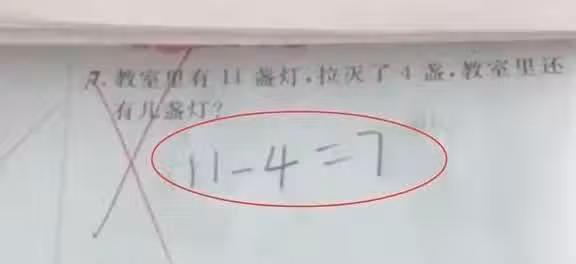 7. 教室里有 11 盏灯，拉灭了 4 盏，教室里还
有几盏灯？
11-4=7